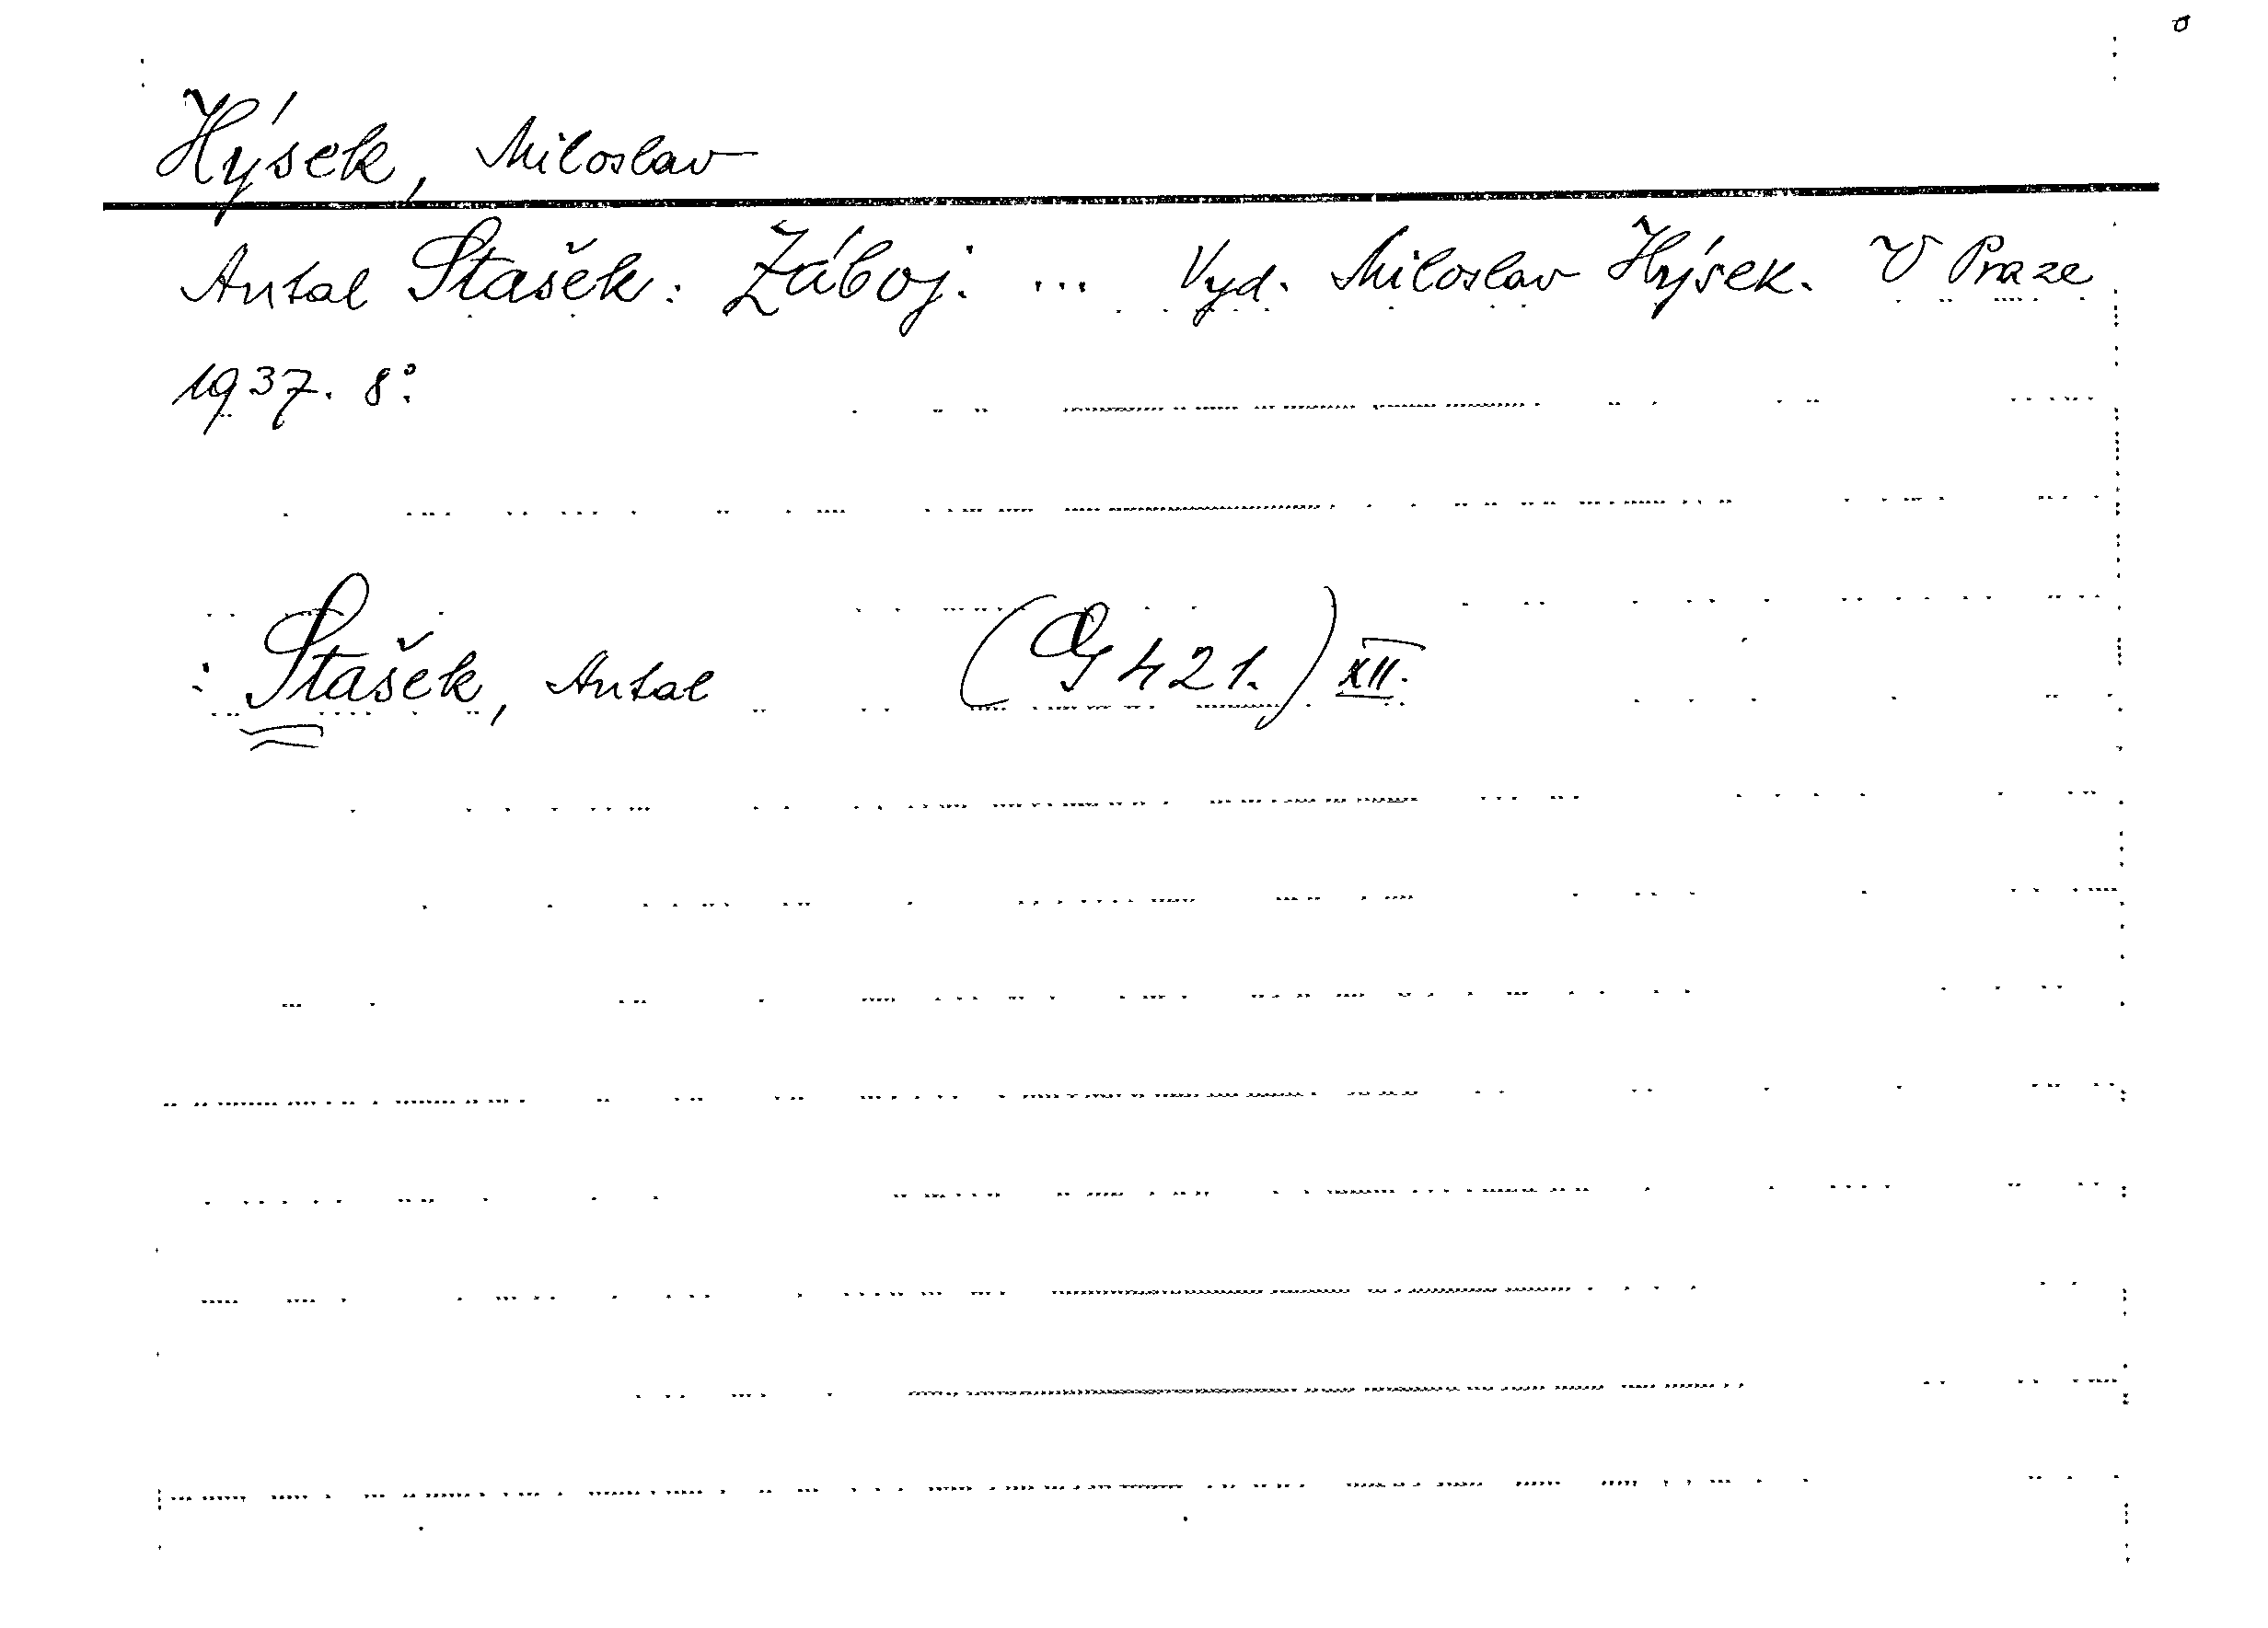 Hýsek, Miloslav
Antal Stašek: Záboj. ... Vyd. Miloslav Hýsek. V Praze
1937. 8°.
: Stašek, Antal (G 421.) XII.